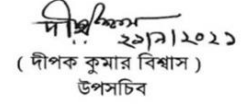 ২৯/৯/২০২১
( দীপক কুমার বিশ্বাস )
উপসচিব